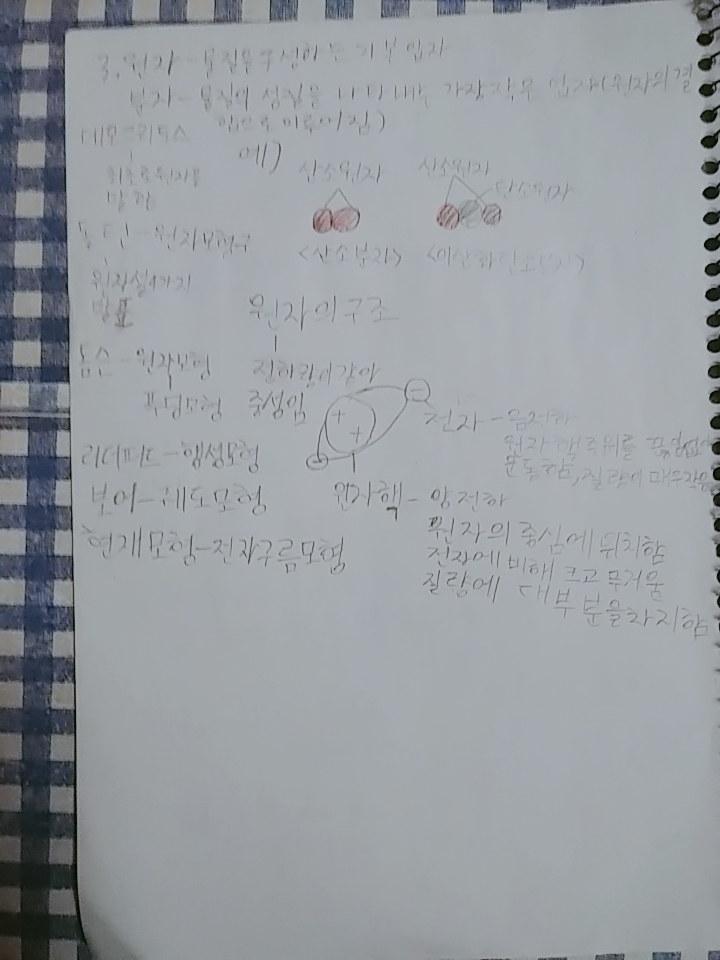 3. 원자 - 물질을 구성하는 기본 입자
분자 - 물질의 성질을 나타내는 가장 작은 입자(원자의 결
합으로 이루어짐)
데모크리토스
최초로 원자를
말함
돌턴 - 원자모형구
원자설 4가지
발표
톰슨 - 원자모형
푸딩모형
러더퍼드 - 행성모형
보어 - 궤도모형
현재모형 - 전자구름모형
예)
산소원자
<산소분자>
산소원자
탄소원자
<이산화탄소분자>
원자의구조
전하량이 같아
중성임
+
+
-
-
전자 - 음전하
원자 핵 주위를
운동함, 질량이 매우작음
원자핵 - 양전하
원자의 중심에 위치함
전자에 비해 크고 무거움
질량에 대부분을 차지함